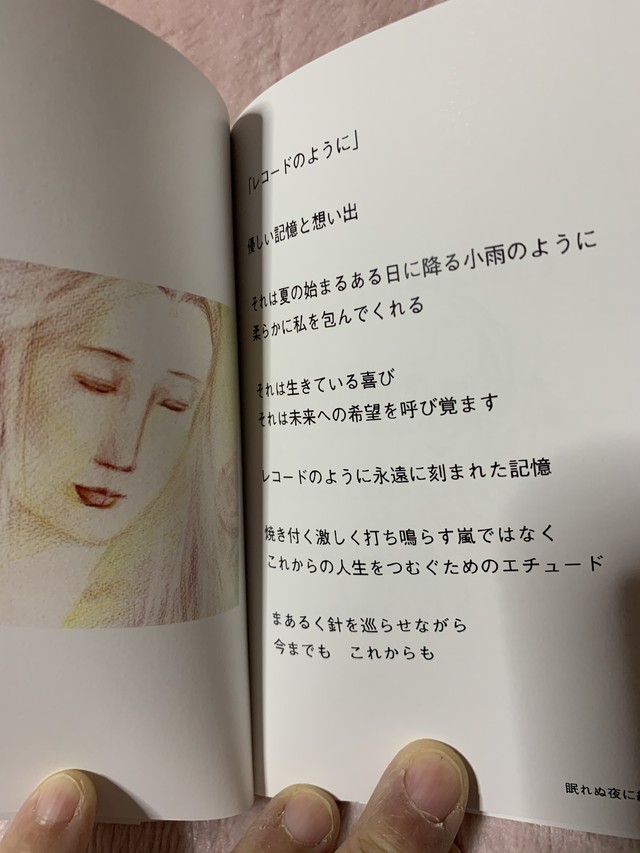 「レコードのように」
優しい記憶と想い出
それは夏の始まるある日に降る小雨のように
柔らかに私を包んでくれる
それは生きている喜び
それは未来への希望を呼び覚ます
レコードのように永遠に刻まれた記憶
焼き付く激しく打ち鳴らす嵐ではなく
これからの人生をつむぐためのエチュード
まあるく針を巡らせながら
今までも　これからも
眠れぬ夜に